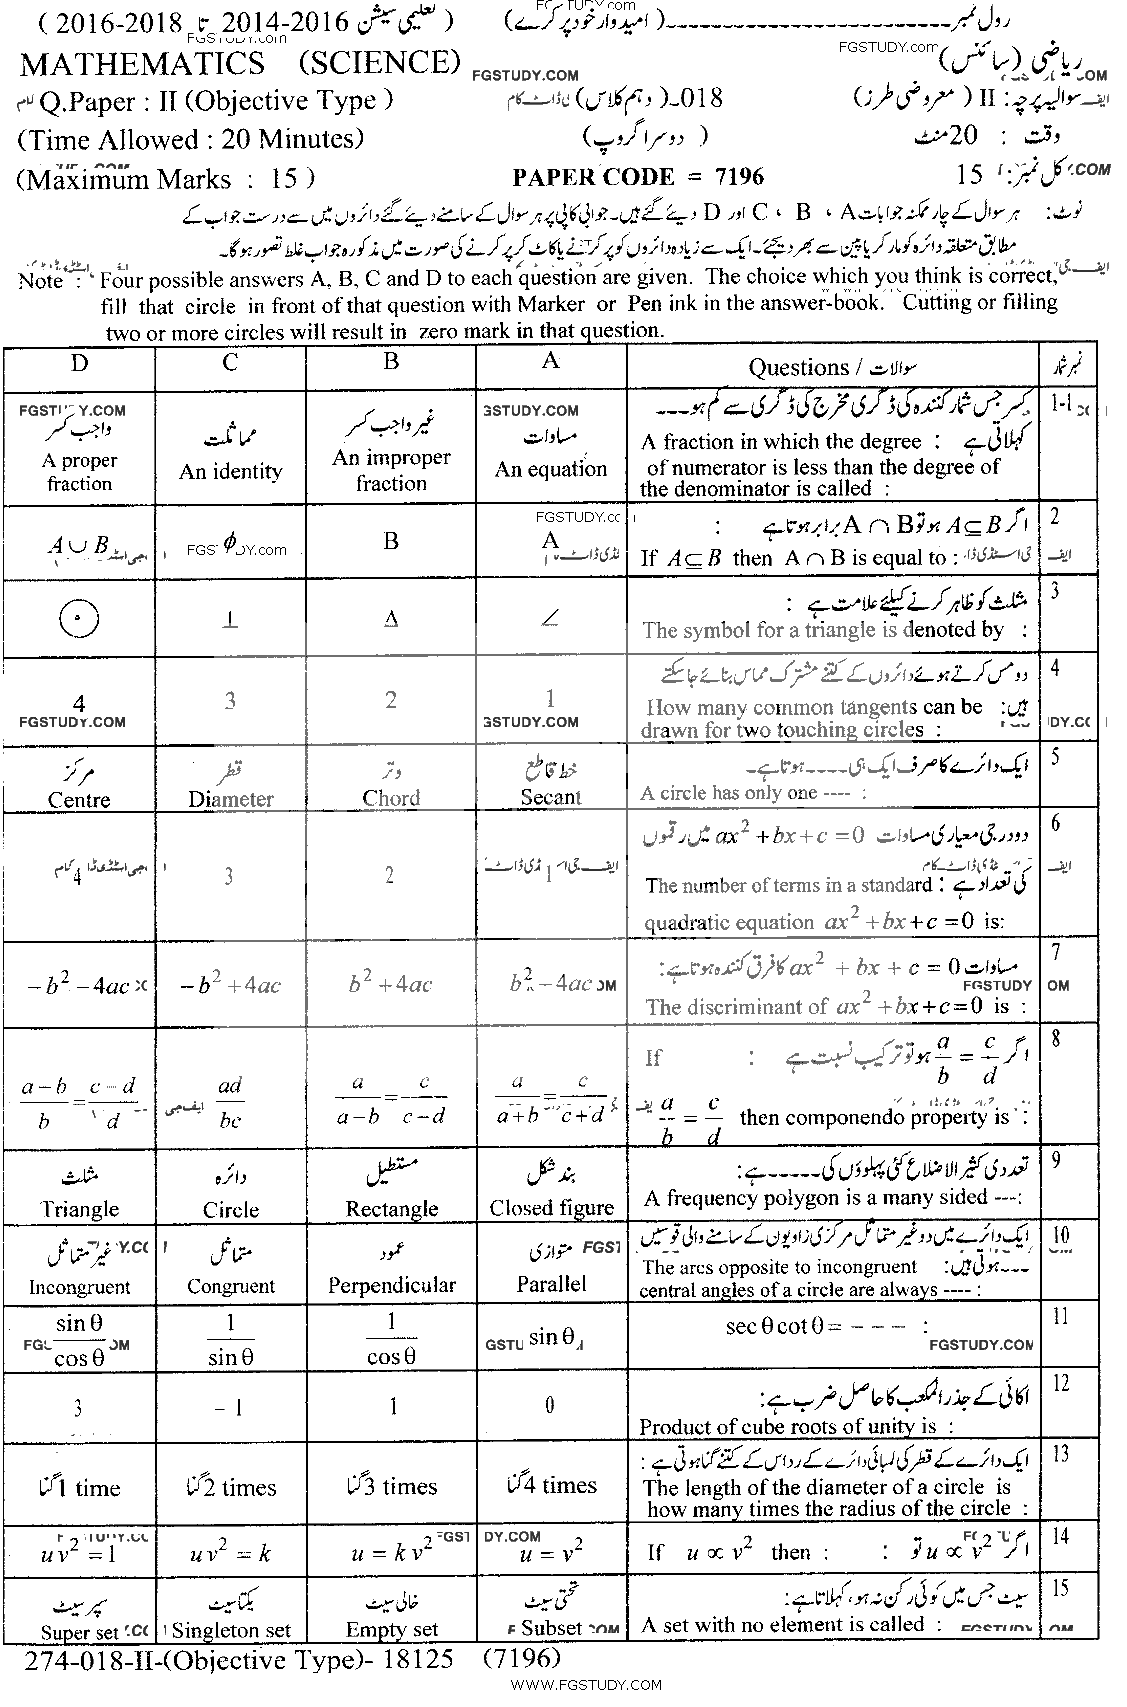 رول نمبر ----------------------------( امیدوار خود پر کرے) ( تعلیمی سیشن 2016-2014 تا 2018-2016 )
FGSTUDY.com
FGSTUDY.com
MATHEMATICS (SCIENCE) FGSTUDY.COM FGSTUDY.com ریاضی (سائنس)
Q.Paper : II (Objective Type ) 018-(دہم کلاس) سوالیہ پرچہ : II ( معروضی طرز)
(Time Allowed : 20 Minutes) ( دوسرا گروپ ) وقت : 20 منٹ
(Maximum Marks : 15 ) PAPER CODE = 7196 کل نمبر : 15
نوٹ : ہر سوال کے چار ممکنہ جوابات A ، B ، C اور D دیئے گئے ہیں۔ جوابی کاپی پر ہر سوال کے سامنے دیئے گئے دائروں میں سے درست جواب کے
مطابق متعلقہ دائرہ کو مارکر یا پین سے بھر دیجئے۔ ایک سے زیادہ دائروں کو پر کرنے یا کاٹ کر پر کرنے کی صورت میں مذکورہ جواب غلط تصور ہوگا۔
Note : Four possible answers A, B, C and D to each question are given. The choice which you think is correct,
fill that circle in front of that question with Marker or Pen ink in the answer-book. Cutting or filling
two or more circles will result in zero mark in that question.
D C B A Questions / سوالات نمبر شمار
1-1 کسر جس شمار کنندہ کی ڈگری مخرج کی ڈگری سے کم ہو ---
کہلاتی ہے : A fraction in which the degree
of numerator is less than the degree of
the denominator is called :
مساوات An equation
غیر واجب کسر An improper fraction
مماثلت An identity
واجب کسر A proper fraction
FGSTUDY.COM
2 اگر A⊆B ہو تو A ∩ B برابر ہوتا ہے :
If A⊆B then A ∩ B is equal to :
A
B
ϕ
A ∪ B
3 مثلث کو ظاہر کرنے کیلئے علامت ہے :
The symbol for a triangle is denoted by :
∠
Δ
⊥
⊙
4 دو مس کرتے ہوئے دائروں کے کتنے مشترک مماس بنائے جا سکتے
ہیں: How many common tangents can be
drawn for two touching circles :
1
2
3
4
FGSTUDY.COM
5 ایک دائرے کا صرف ایک ہی ---- ہوتا ہے۔
A circle has only one ---- :
خط قاطع Secant
وتر Chord
قطر Diameter
مرکز Centre
6 دو درجی معیاری مساوات ax² + bx + c = 0 میں رقموں
کی تعداد ہے : The number of terms in a standard
quadratic equation ax² + bx + c = 0 is:
1
2
3
4
7 مساوات ax² + bx + c = 0 کا فرق کنندہ ہوتا ہے:
The discriminant of ax² + bx + c = 0 is :
b² − 4ac
b² + 4ac
−b² + 4ac
−b² − 4ac
8 اگر a/b = c/d ہو تو ترکیب نسبت ہے : If
a/b = c/d then componendo property is :
a/(a+b) = c/(c+d)
a/(a−b) = c/(c−d)
ad/bc
(a−b)/b = (c−d)/d
9 تعددی کثیر الاضلاع کئی پہلوؤں کی ----- ہے:
A frequency polygon is a many sided ---:
بند شکل Closed figure
مستطیل Rectangle
دائرہ Circle
مثلث Triangle
10 ایک دائرے میں دو غیر متماثل مرکزی زاویوں کے سامنے والی قوسیں
--- ہوتی ہیں: The arcs opposite to incongruent
central angles of a circle are always ---- :
متوازی Parallel
عمود Perpendicular
متماثل Congruent
غیر متماثل Incongruent
11 sec θ cot θ = − − − :
FGSTUDY.COM
sin θ
1/cos θ
1/sin θ
sin θ/cos θ
12 اکائی کے جذر المکعب کا حاصل ضرب ہے:
Product of cube roots of unity is :
0
1
− 1
3
13 ایک دائرے کے قطر کی لمبائی دائرے کے رداس کے کتنے گنا ہوتی ہے :
The length of the diameter of a circle is
how many times the radius of the circle :
گنا 4 times
گنا 3 times
گنا 2 times
گنا 1 time
14 اگر u ∝ v² تو :
If u ∝ v² then :
u = v²
u = k v²
uv² = k
uv² = 1
15 سیٹ جس میں کوئی رکن نہ ہو، کہلاتا ہے:
A set with no element is called :
تحتی سیٹ Subset
خالی سیٹ Empty set
یکتا سیٹ Singleton set
سپر سیٹ Super set
274-018-II-(Objective Type)- 18125 (7196)
WWW.FGSTUDY.COM